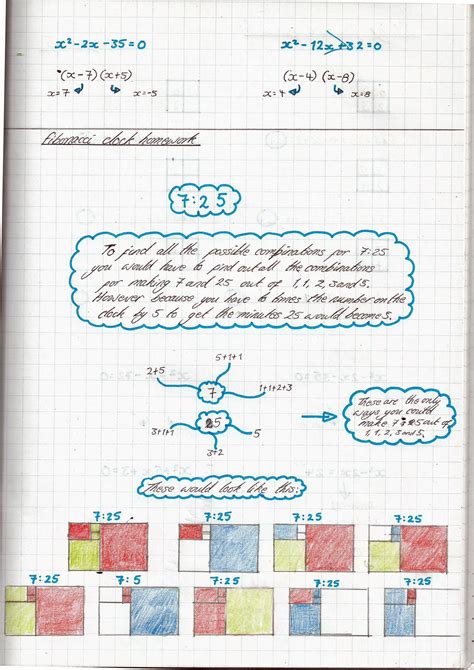 x² - 2x - 35 = 0
x² - 12x + 32 = 0
(x-7) (x+5)
(x-4) (x-8)
x=7
x=-5
x=4
x=8
Fibonacci clock homework
7:25
To find all the possible combinations for 7:25
you would have to find out all the combinations
for making 7 and 25 out of 1, 1, 2, 3 and 5.
However because you have to times the number on the
clock by 5 to get the minutes 25 would become 5.
2+5
5+1+1
7
1+1+2+3
25
3+1+1
3+2
5
These are the only
ways you could
make 7:25 out of
1, 1, 2, 3 and 5.
These would look like this:
7:25
7:25
7:25
7:25
7:25
7:5
7:25
7:25
7:25